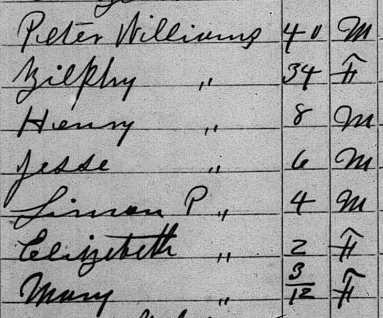 Peter Williams 40 M
Zilphy " 34 F
Henry " 8 M
Jesse " 6 M
Simon P " 4 M
Elizebeth " 2 F
Mary " 3/12 F